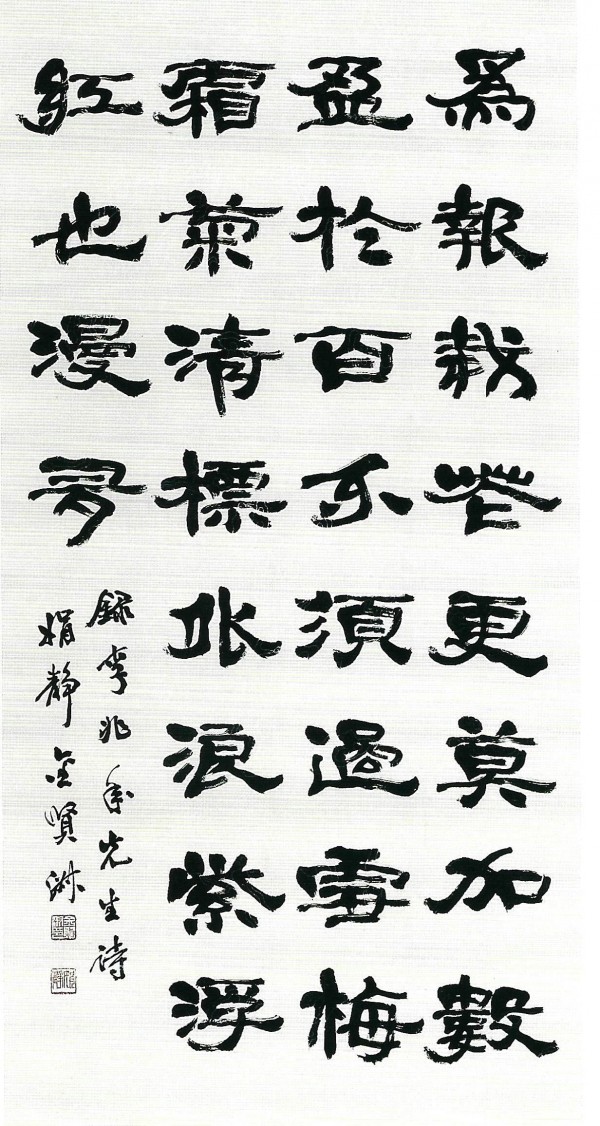 爲報栽花更莫加數
盈於百不須過雪梅
霜菊清標外浪紫浮
紅也漫多
錄李兆年先生詩
娟靜金賢淑